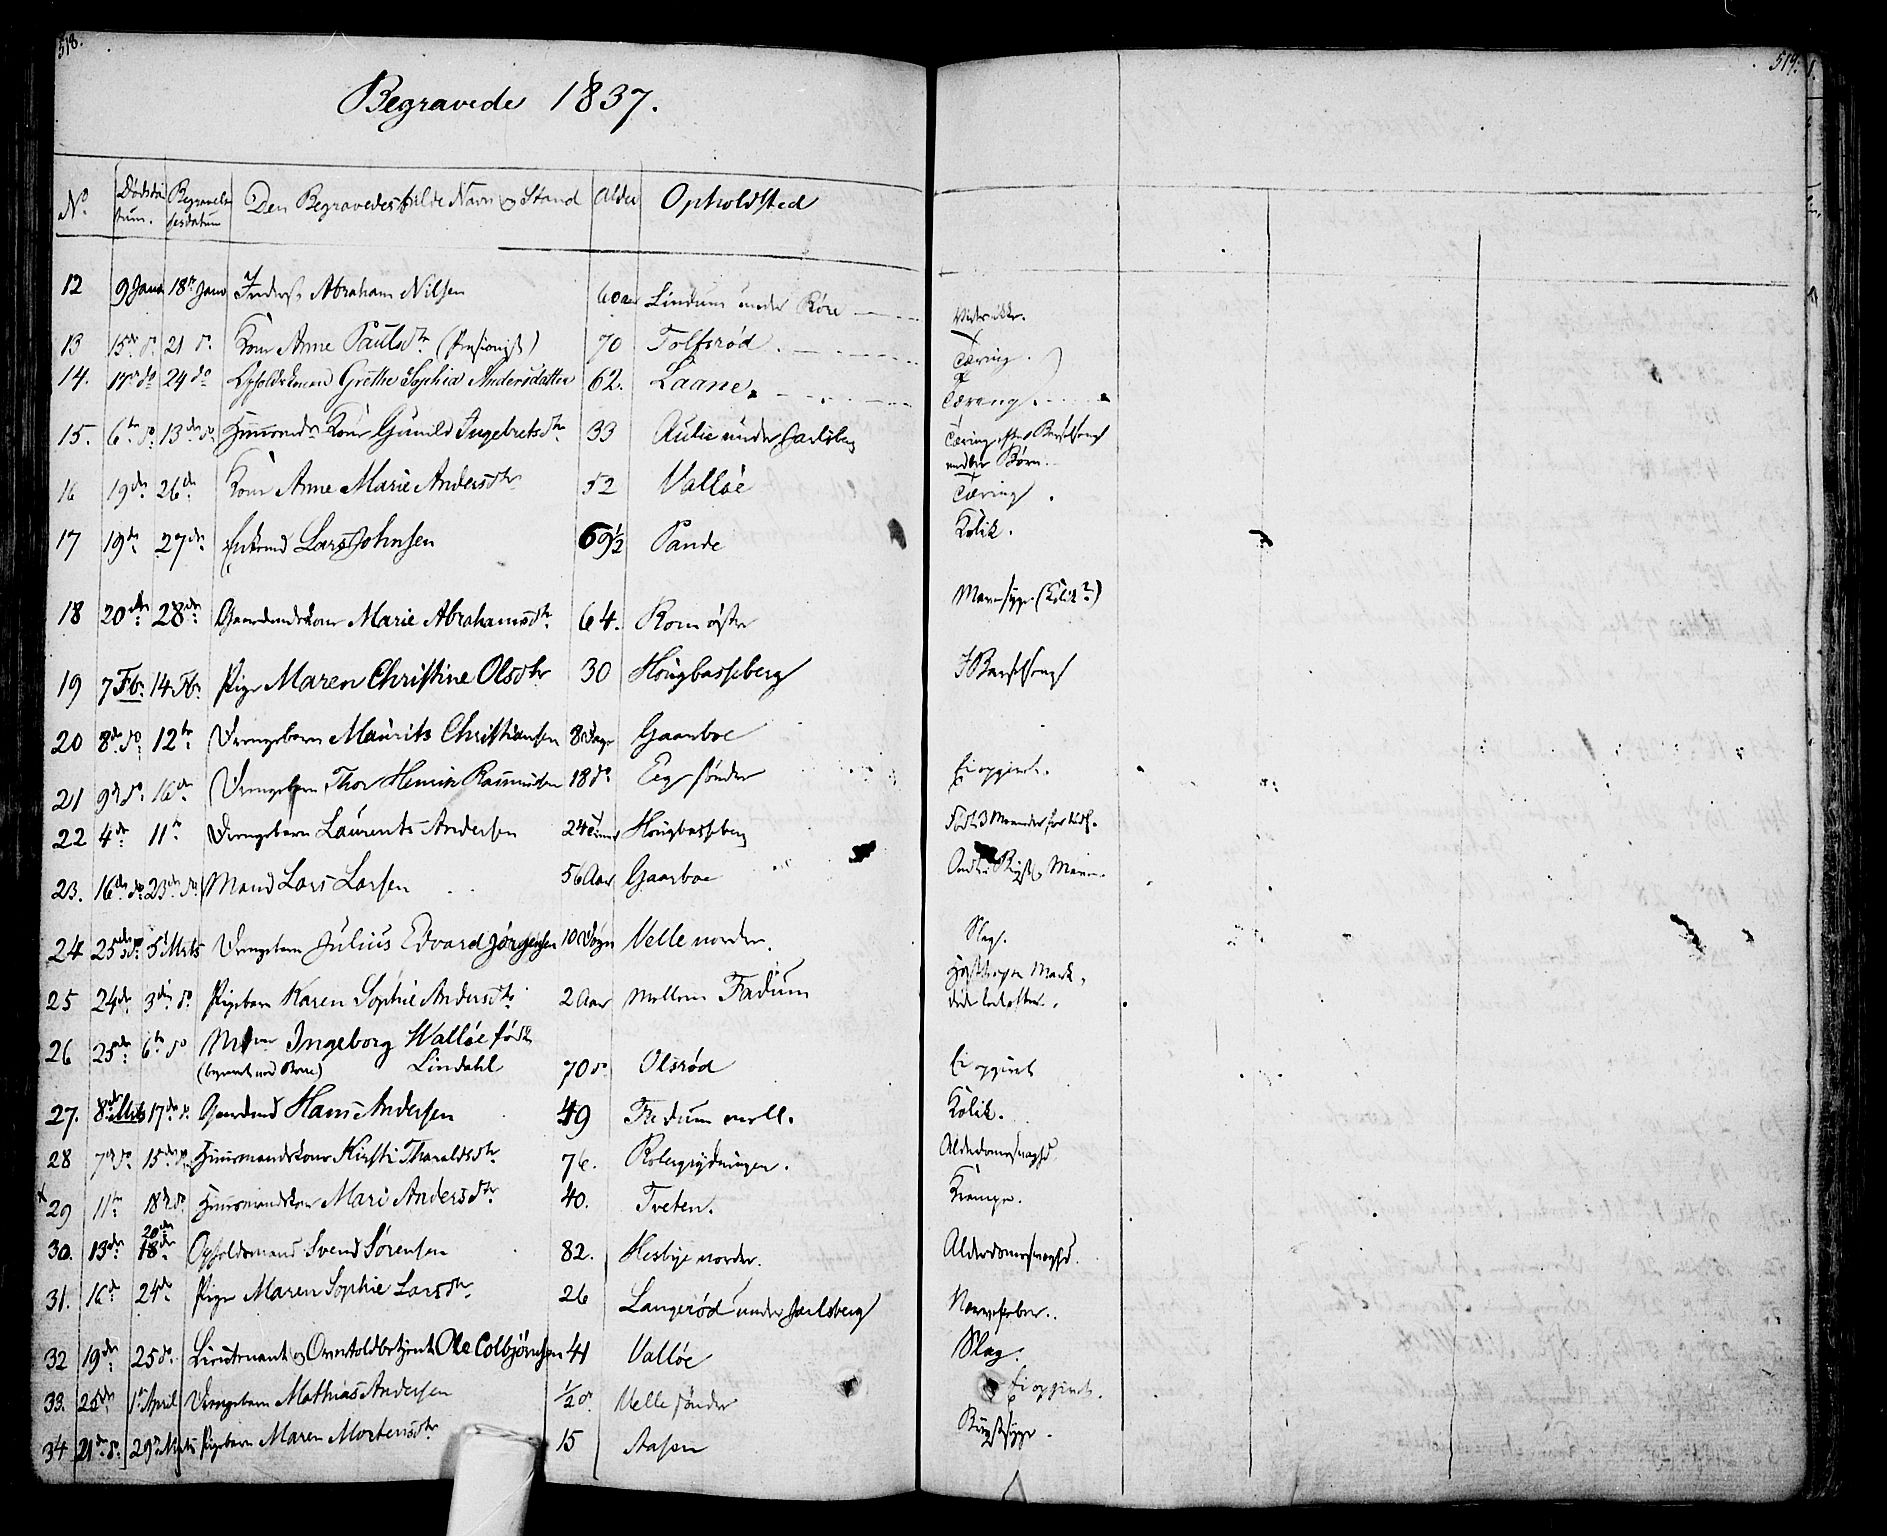 518.
519.
Begravede 1837.
No Dødsda Begravel Den Begravedes fulde Navn og Stand Alder Opholdsted
tum. sesdatum
12 9 Janu 18de Janu Inderst Abraham Nilsen 60 aar Lindum under Røre
13 15de do 21 do Kone Anne Paulsdtr 70 Tolfsrød. Tæring.
14. 17de do 24 do Grethe Sophia Andersdatter 62. Laane. Tæring.
15. 6te do 13de do Huusmds Kone Gunild Ingebretsdtr 33 Aulie under Jarlsberg Tæring efter Barselseng
under Børn.
16 19de 26de Kone Anne Marie Andersdtr 52 Valløe Tæring.
17 19de 27de Enkemd Lars Johnsen 69½ Pande Kolik.
18 20de 28de Gaardmdskone Marie Abrahamsdtr 64. Rom østre Mavesyge (Kolik?)
19 7 Feb. 14 Feb. Pige Maren Christine Olsdtr 30 Hougbasseberg I Barselseng
20 8de do 12te Drengebarn Maurits Christiansen 8 Dage Gaarboe
21 9de do 16de Drengebarn Thor Henrik Rasmussen 18 do Eeg søndre Ei opgivet.
22 4de 11te Drengebarn Laurents Andersen 24 Timer Hougbasseberg Født 3 Maaneder for tidl.
23. 16de do 23de do Mand Lars Larsen 56 Aar Gaarboe
24 25de do 5 Marts Drengebarn Julius Edvard Jørgensen 10 Døgn Velle nordre. Slag.
25 24de 3die do Pigebarn Karen Sophie Andersdtr 2 Aar mellem Fadum
26 25de 6te do Ingeborg Walløe født
Lindahl 70 do Olsrød Ei opgivet
27. 8de Mts 17de do Gaardmd Hans Andersen 49 Fadum mell. Kolik.
28 7de do 15de do Huusmandskone Kirsti Tharaldsdtr 76. Alderdomssvaghd.
29 11te 18de do Huusmandskone Mari Andersdtr 40. Tveten. Krampe.
20de
30. 13de 18de Opholdsmand Svend Sørensen 82. Hesbye nordre. Alderdomssvaghd.
31. 16de 24de Pige Maren Sophie Larsdtr. 26 Langerød under Jarlsberg Nervefeber.
32 19de 25 do. Lieutenant og Overtoldbetjent Ole Colbjørnsen 41 Valløe Slag.
33. 25de 1ste April Drengebarn Mathias Andersen ½ do. Velle søndre Ei opgivet.
34 21de do. 29de Marts Pigebarn Maren Mortensdtr 15 Aasen Brystsyge.